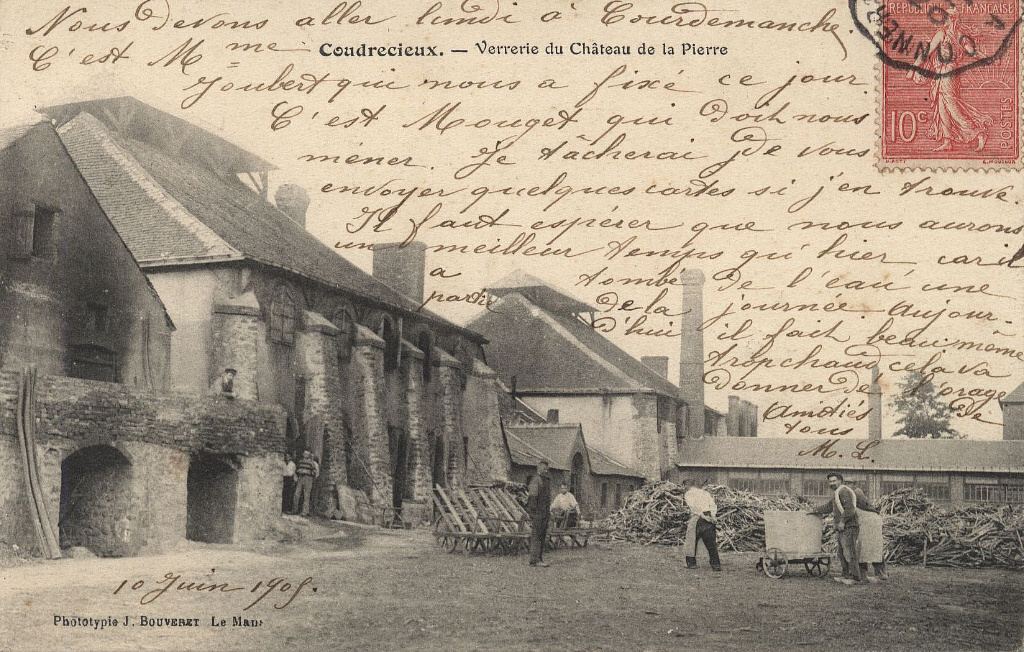 Nous devons aller lundi à Courdemanche.
C'est Mme
Coudrecieux. — Verrerie du Château de la Pierre
Joubert qui nous a fixé ce jour
C'est Mouget qui doit nous
mener. Je tâcherai de vous
envoyer quelques cartes si j'en trouve.
Il faut espérer que nous aurons
un meilleur temps qu'hier car il
a tombé de l'eau une
partie de la journée. Aujour-
d'hui il fait beau même
trop chaud cela va
donner de l'orage
Amitiés de
tous
M. L.
RÉPUBLIQUE FRANÇAISE
10c
POSTES
CONNERRÉ
10 Juin 1905.
Phototypie J. BOUVERET Le Mans